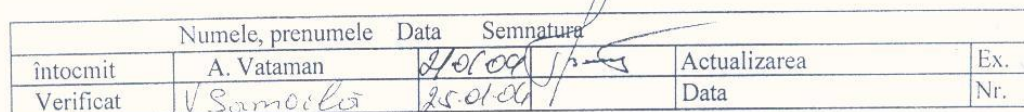 Numele, prenumele Data Semnatura
întocmit A. Vataman Actualizarea Ex.
Verificat V Samoilă 25.01.04 Data Nr.